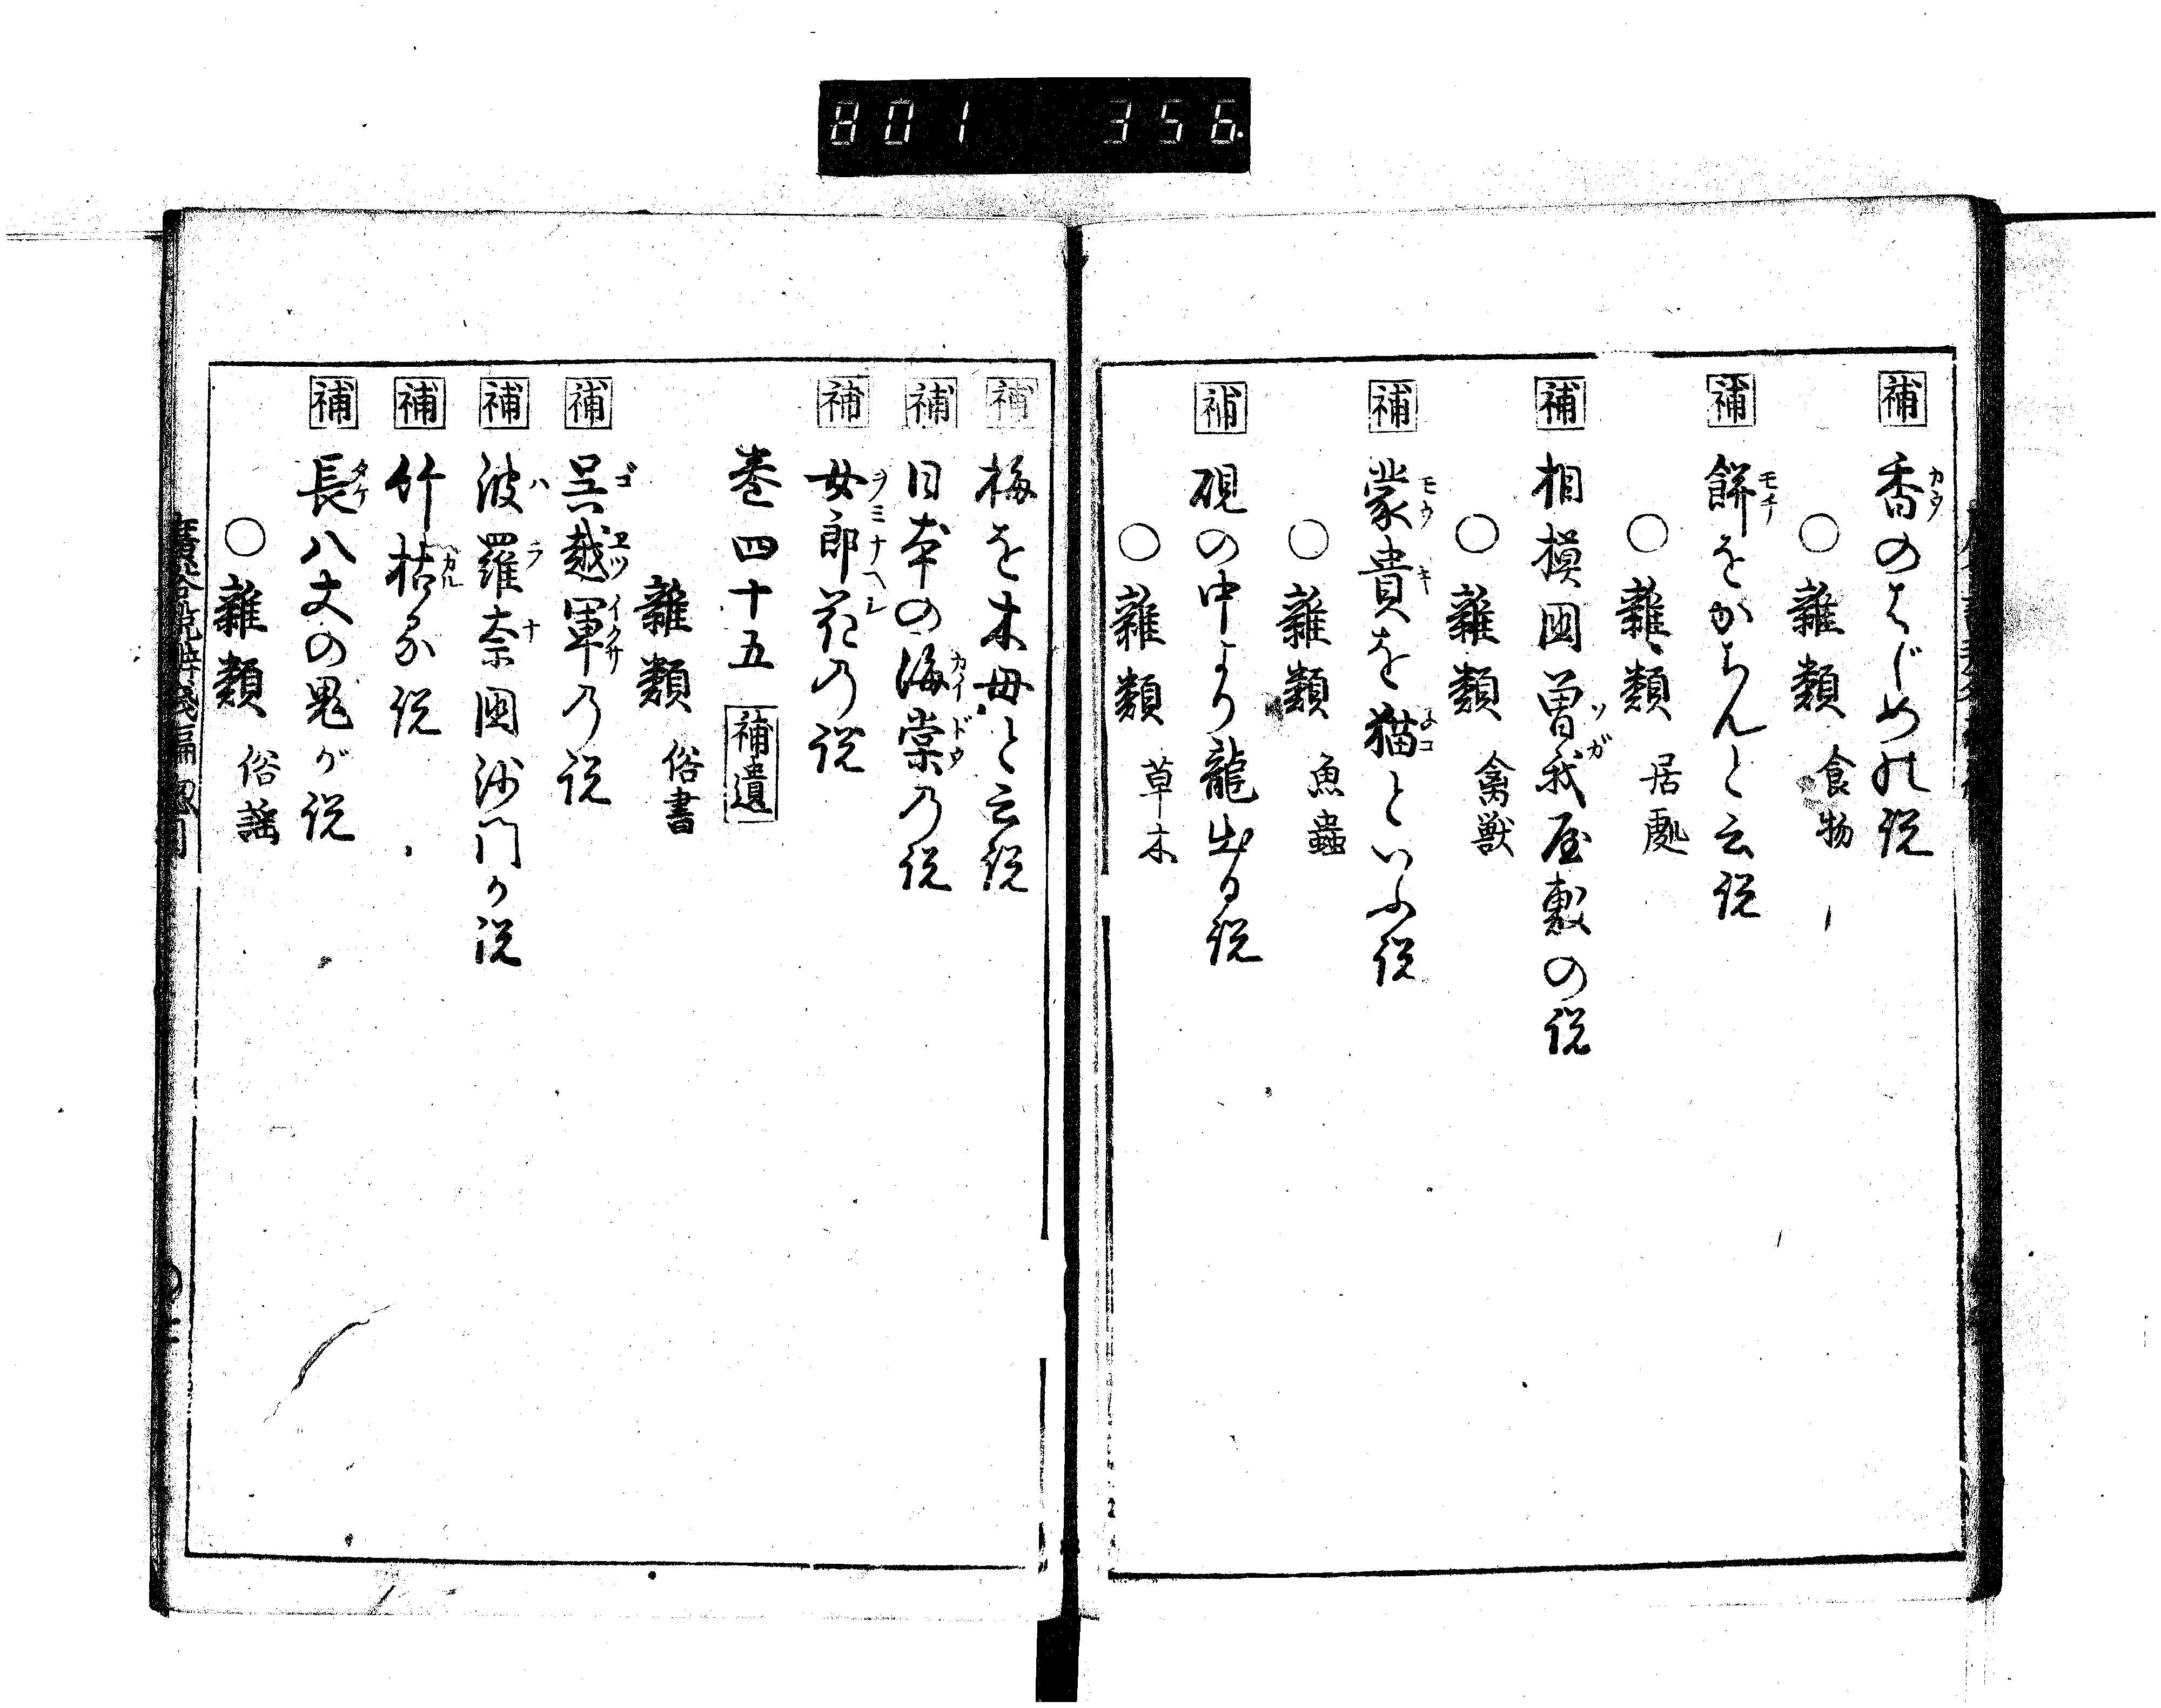 801 356
補 香のはじめの説
○雜類 食物
補 餅をかちんと云説
○雜類 居處
補 相摸國曽我屋敷の説
○雜類 禽獣
補 蒙貴を猫といふ説
○雜類 魚蟲
補 硯の中より龍出る説
○雜類 草木
補 梅を木母と云説
補 日本の海棠乃説
補 女郎花乃説
巻四十五 補遺
雜類 俗書
補 呉越軍乃説
補 波羅奈國沙門か説
補 竹枯る説
補 長八丈の鬼が説
○雜類 俗謡